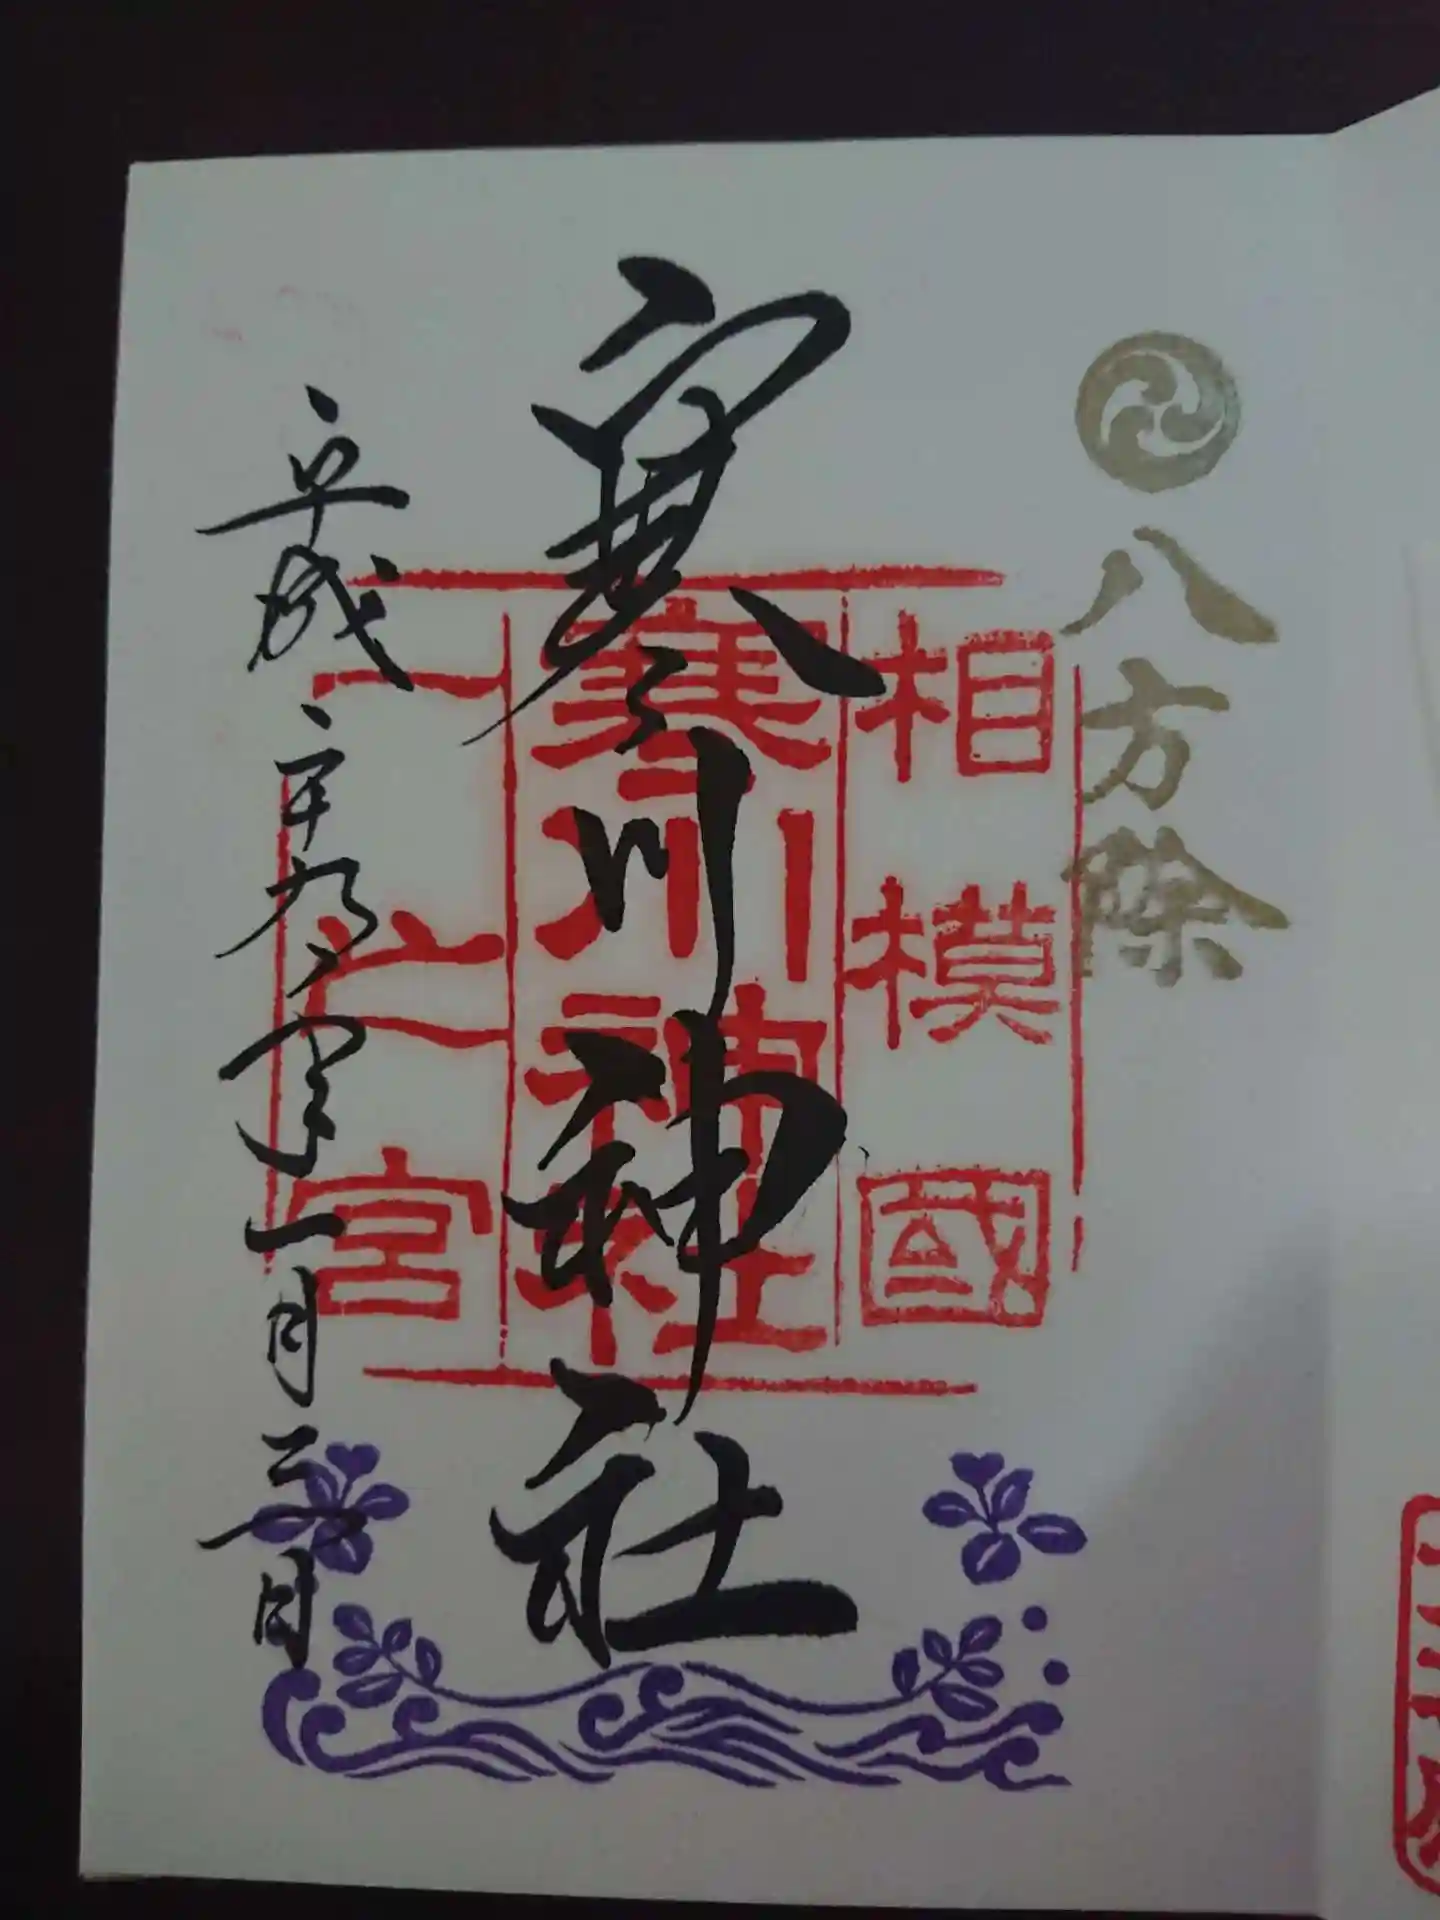 八方除
相模國
寒川神社
一之宮
寒川神社
平成二十九年一月三日